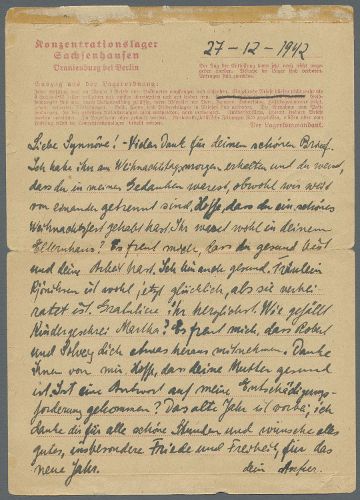 Konzentrationslager
Sachsenhausen
Oranienburg bei Berlin
27-12-1942
Auszug aus der Lagerordnung:
Der Tag der Entlassung kann jetzt noch nicht ange-
geben werden. Besuche im Lager sind verboten.
Anfragen sind zwecklos.
Der Lagerkommandant.
Liebe Synnöve! - Vielen Dank für deinen schönen Brief.
Ich habe ihn am Weihnachtstagmorgen erhalten und du weisst,
dass du in meinen Gedanken warest, obwohl wir weit
von einander getrennt sind. Hoffe, dass du ein schönes
Weihnachtsfest gehabt hast. Ihr waret wohl in deinem
Elternhaus? Es freut mich, dass du gesund bist
und deine Arbeit hast. Ich bin auch gesund. Fräulein
ist wohl jetzt glücklich, als sie verhei-
ratet ist. Gratuliere ihr herzlichst. Wie gefällt
Kindergeschrei Martha? Es freut mich, dass Robert
und Solveig dich etwas heraus mitnehmen. Danke
ihnen von mir. Hoffe, dass deine Mutter gesund
ist. Ist eine Antwort auf meine Entschädigungs-
forderung gekommen? Das alte Jahr ist vorbei, ich
danke dir für alle schöne Stunden und wünsche alles
gutes, insbesondere Friede und Freiheit für das
neue Jahr. dein